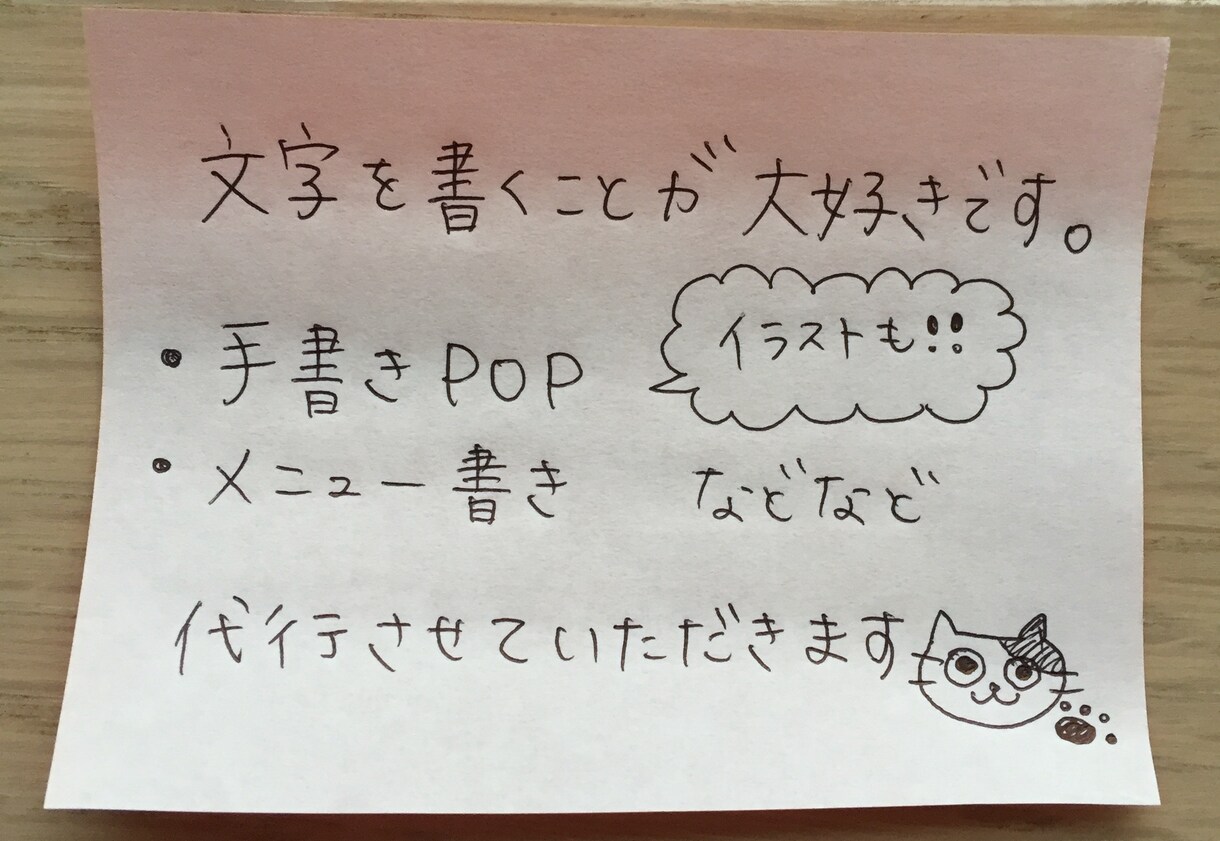 文字を書くことが大好きです。
イラストも!!
・手書きPOP
・メニュー書き　などなど
代行させていただきます